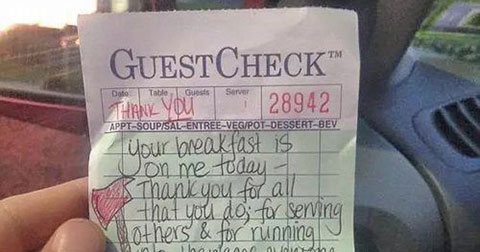 GUESTCHECK™
Date Table Guests Server
THANK YOU 1 28942
APPT-SOUP/SAL-ENTREE-VEG/POT-DESSERT-BEV
your breakfast is
on me today -
Thank you for all
that you do; for serving
others & for running
into the places everyone